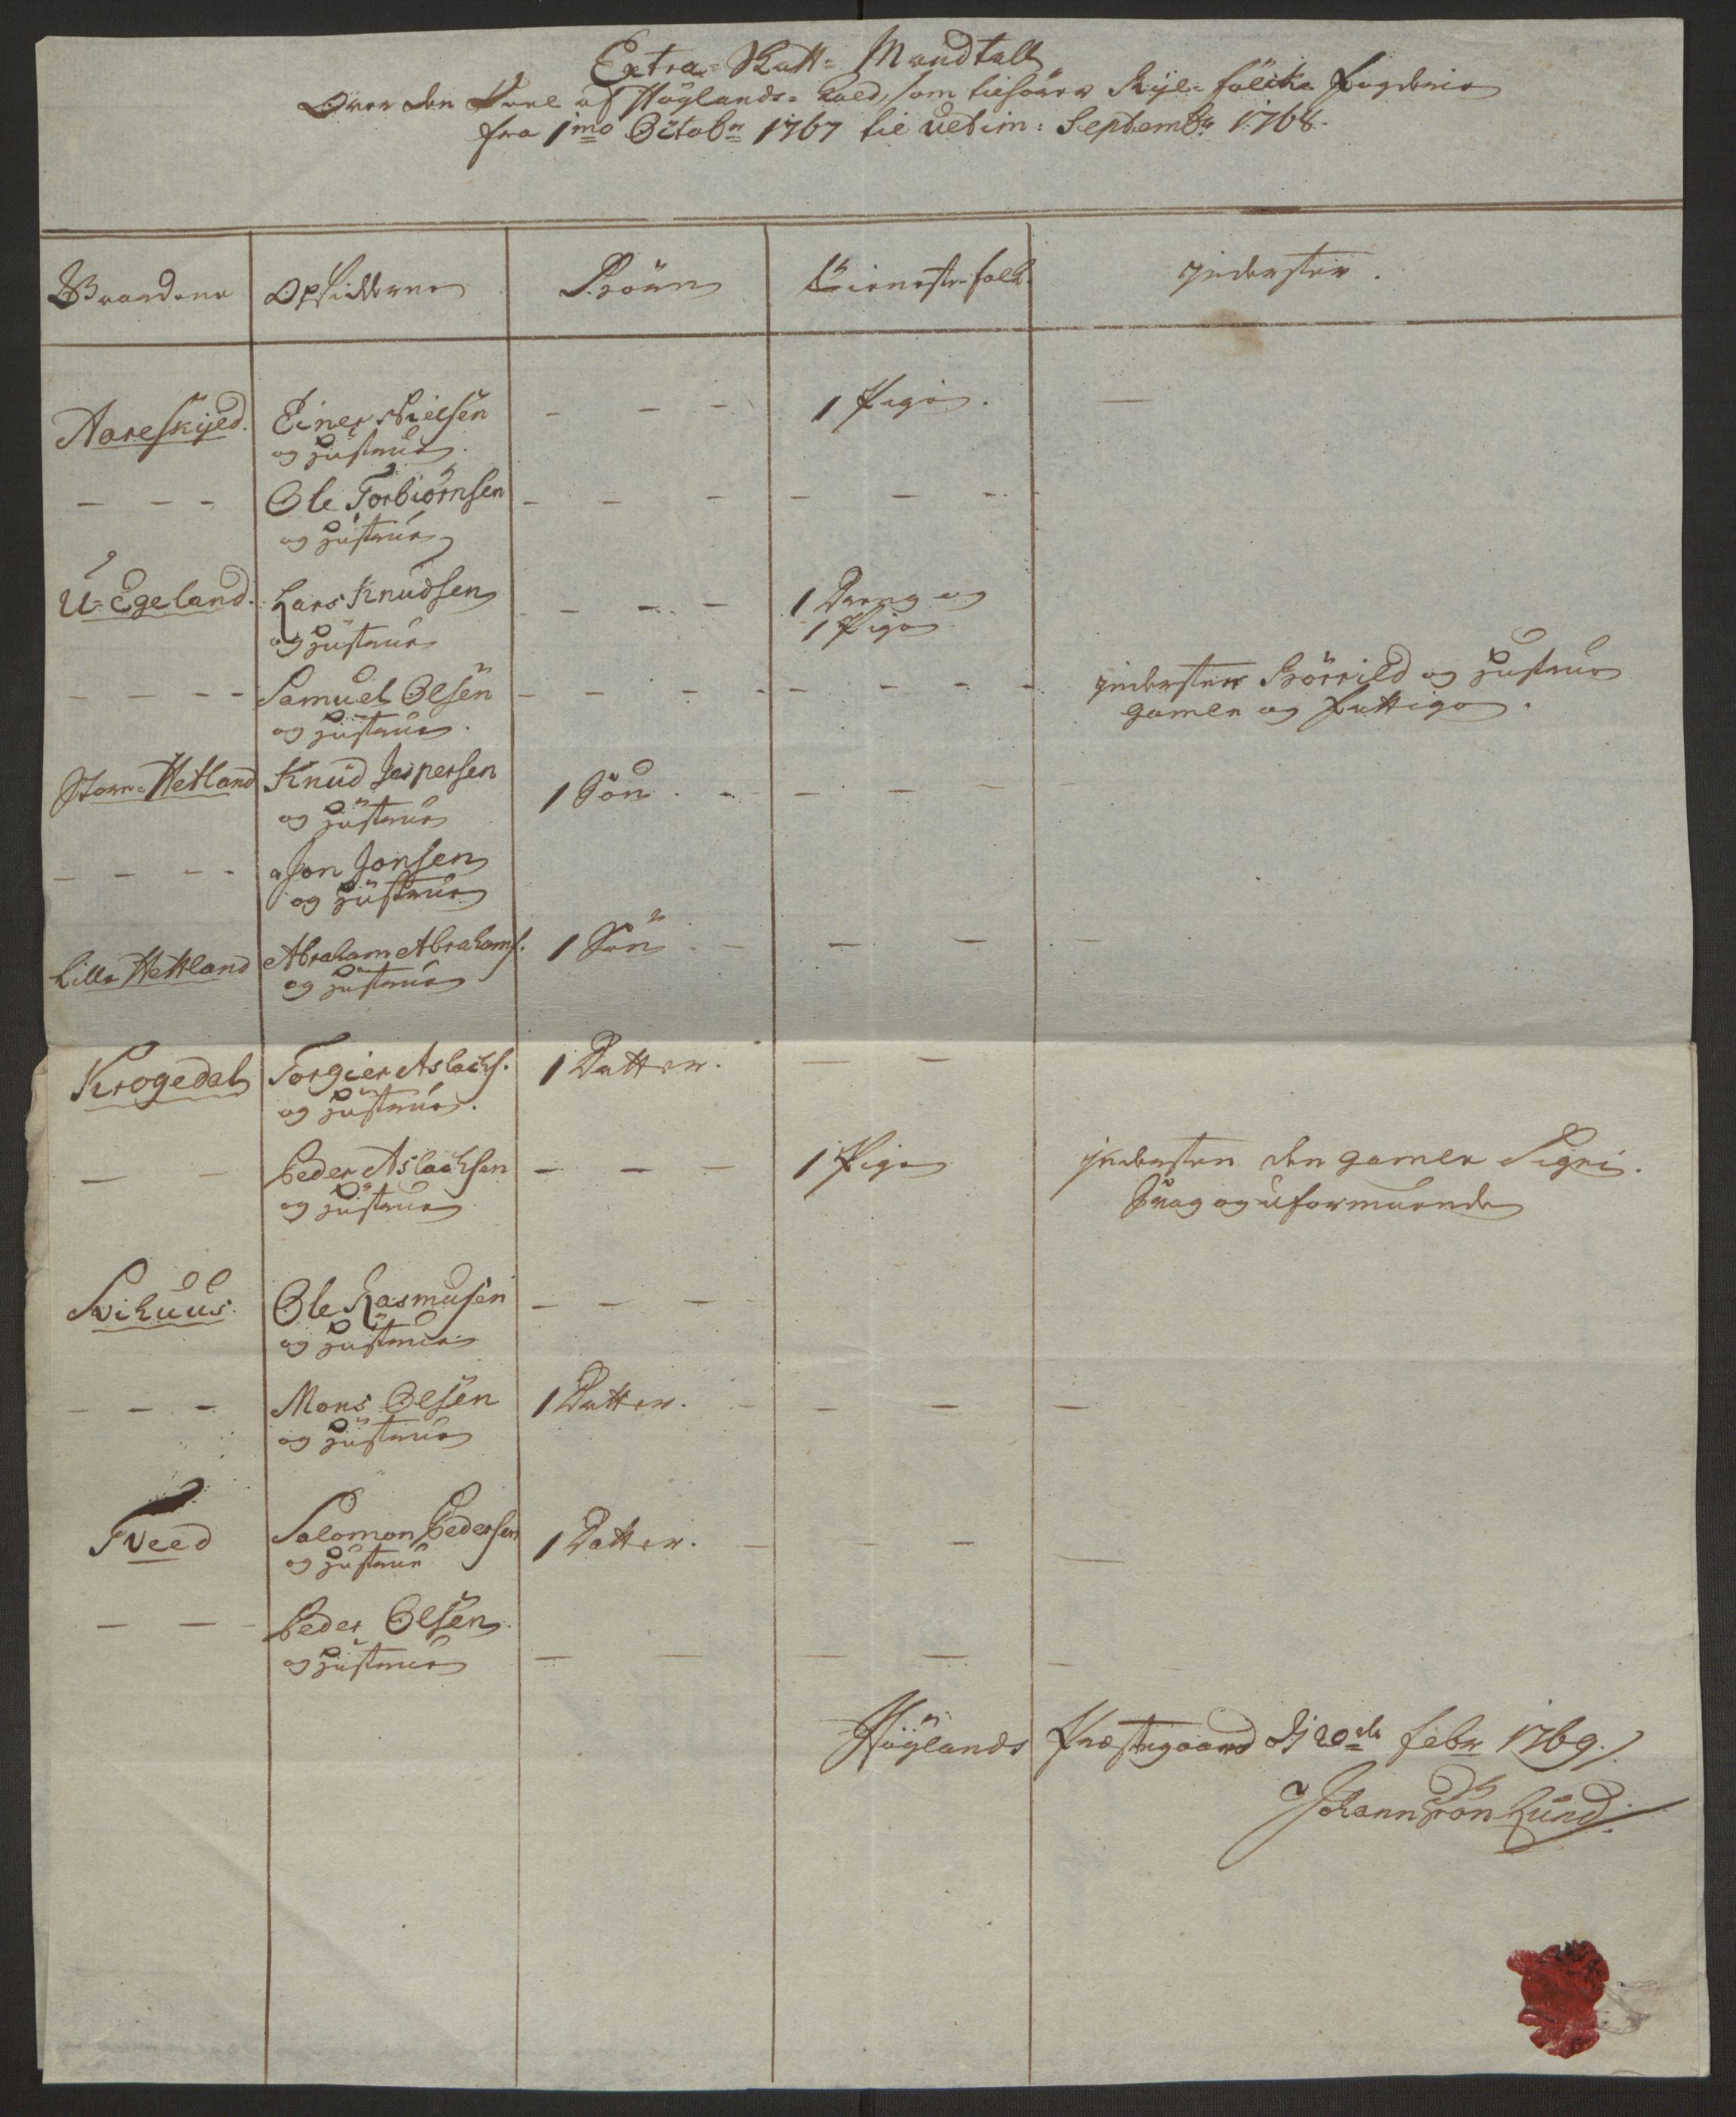 Extra-Skatt-Mandtall
Over den Deel af Höglands-Gield, som tilhörer Ryefölcke Fogderie
fra 1mo Octobr 1767 til ultim: Septembr 1768.
Gaardene Opsidderne Börn Tieneste-folk Inderster.
Aareskijed. Einer Nielsen - - - 1 Pige. -
og Hustrue.
- - - Ole Torbiörnsen - - - - - -
og Hustrue
U-Egeland. Lars Knudsen - - - 1 Dreng og
og Hustrue 1 Pige
- - - - Samuel Olsen - - - - - - - - Indersten og Hustrue
og Hustrue. gamle og fattige.
Store-Hetland Knud Jespersen 1 Sön. - - - - -
og Hustrue
- - - - Jon Jonsen
og Hustrue
Lille Hettland Abraham Abrahams. 1 Sön - - - -
og Hustrue
Krogedal Torgier Aslachs. 1 Datter. - -
og Hustrue.
- - Peder Aslachsen - - - 1 Pige Indersten den gamle Sigri.
og Hustrue Svag og uformuende
Svihuus. Ole Rasmusen - - - -
og Hustrue
- - - Mons Olsen 1 Datter. - - - -
og Hustrue
Tveed Salomon Pedersen 1 Datter. - - - -
og Hustrue
- - - Peder Olsen
og Hustrue - - - - -
Höylands Præstegaard Dj 20de febr 1769.
Johann Lund.